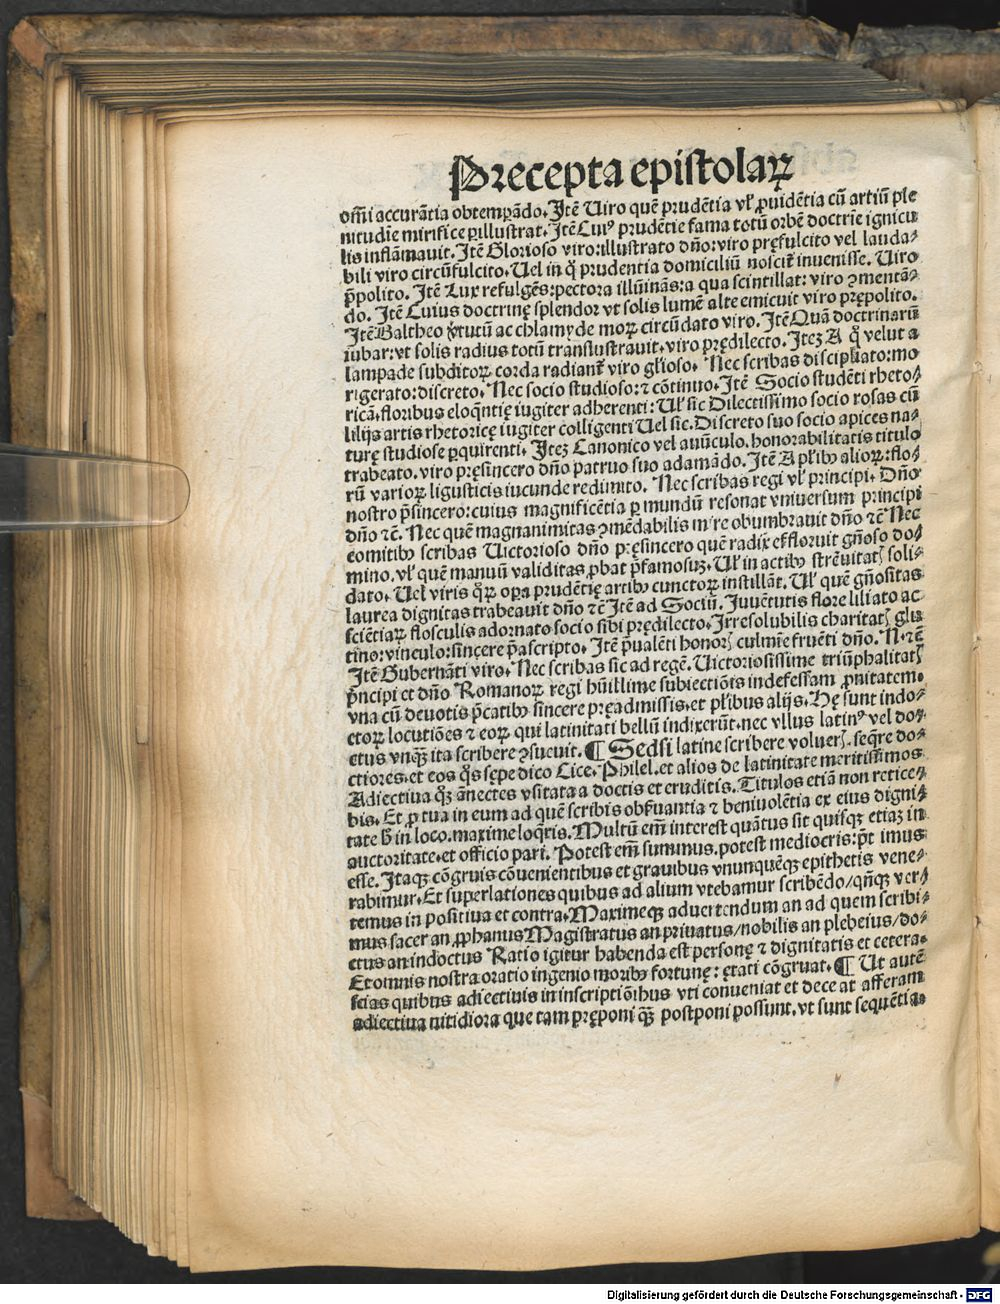 Precepta epistolaꝝ
om̄i accurātia obtemꝑādo. Itē Uiro quē prudētia vł ꝓuidētia cū artiū ple
nitudīe mirifice ꝑillustrat. Itē Cuiꝰ prudētie fama totū orbē doctrīe ignicu
lis inflāmauit. Itē Glorioso viro: illustrato dño: viro pręfulcito vel lauda⸗
bili viro circūfulcito. Uel in q̊ prudentia domiciliū noscit̄ inuenisse. Uiro
p̄polito. Itē Lux refulgēs: pectora illūināns: a qua scintillat: viro ꝯmentā⸗
do. Itē Cuius doctrinę splendor vt solis lumē alte emicuit viro prępolito.
Itē Baltheo v̓tutū ac chlamyde moꝝ circūdato viro. Itē Quā doctrinarū
iubar: vt solis radius totū translustrauit. viro prędilecto. Iteʒ A q̊ velut a
lampade subditoꝝ corda radiant̄ viro gl̄ioso. Nec scribas discipl̄iato: mo
rigerato: discreto. Nec socio studioso: ⁊ cōtinuo. Itē Socio studēti rheto⸗
ricā, floribus eloq̄ntię iugiter adherenti: Uł sic Dilectissimo socio rosas cū
lilijs artis rhetoricę iugiter colligenti Uel sic. Discreto suo socio apices na⸗
turę studiose ꝑquirenti. Iteʒ Canonico vel auūculo. honorabilitatis titulo
trabeato. viro pręsincero dño patruo suo adamādo. Itē A pl̄ibꝰ alioꝝ: flo⸗
rū varioꝝ ligusticis iucunde redimito. Nec scribas regi vł principi. Dño
nostro p̄sincero: cuius magnificētia ꝑ mundū resonat vniuersum principi
dño ⁊c̄. Nec quē magnanimitas ꝯmēdabilis mire obumbrauit dño ⁊c̄ Nec
comitibꝰ scribas Uictorioso dño pręsincero quē radix effloruit gn̄oso do⸗
mino. vł quē manuū validitas ꝓbat p̄famosuʒ. Uł in actibꝰ strēuitatꝭ soli⸗
dato. Uel viris q̊ꝝ oꝑa prudētię artibꝰ cunctoꝝ instillāt. Uł quē gn̄ositas
laurea dignitas trabeauit dño ⁊c̄ Itē ad Sociū. Iuuētutis flore liliato ac
sciētiaꝝ flosculis adornato socio sibi prędilecto. Irresolubilis charitatꝭ glu
tino: vinculo: sincere p̄ascripto. Itē p̄ualēti honorꝭ culmīe fruēti dño. N. ⁊c̄
Itē Gubernāti viro. Nec scribas sic ad regē. Uictoriosissime triūphalitatꝭ
p̄ncipi et dño Romanoꝝ regi hūillime subiectiōis indefessam ꝓnitatem.
vna cū deuotis p̄catibꝰ sincere pręadmissis. et pl̄ibus alijs. Hę sunt indo⸗
ctoꝝ locutiōes ⁊ eoꝝ qui latinitati bellū indixerūt. nec vllus latinꝰ vel do⸗
ctus vnqꝫ ita scribere ꝯsueuit. ¶ Sed si latine scribere voluerꝭ. seq̄re do⸗
ctiores. et eos q̊s sępe dico Cice. Philel. et alios de latinitate meritissimos
Adiectiua q̊ꝫ ānectes vsitata a doctis et eruditis. Titulos etiā non retice⸗
bis. Et ꝓ tua in eum ad quē scribis obẜuantia ⁊ beniuolētia ex eius digni⸗
tate ẜm loco. maxime loq̄ris. Multū em̄ interest quātus sit quisqꝫ etiaʒ in
auctoritate. et officio pari. Potest em̄ summus. potest mediocris: pōt imus
esse. Itaqꝫ cōgruis cōuenientibus et grauibus vnumquēqꝫ epithetis vene⸗
rabimur. Et superlationes quibus ad alium vtebamur scribēdo/ qn̄qꝫ ver⸗
temus in positiua et contra. Maximeqꝫ aduertendum an ad quem scribi⸗
mus sacer an ꝓphanus Magistratus an priuatus/ nobilis an plebeius/ do⸗
ctus an indoctus Ratio igitur habenda est personę ⁊ dignitatis et cetera.
Et omnis nostra oratio ingenio moribꝰ fortunę: ętati cōgruat. ¶ Ut autē
scias quibus adiectiuis in inscriptiōibus vti conueniat et deceat afferam
adiectiua nitidiora que tam pręponi qꝫ postponi possunt. vt sunt sequētia.
Digitalisierung gefördert durch die Deutsche Forschungsgemeinschaft - DFG